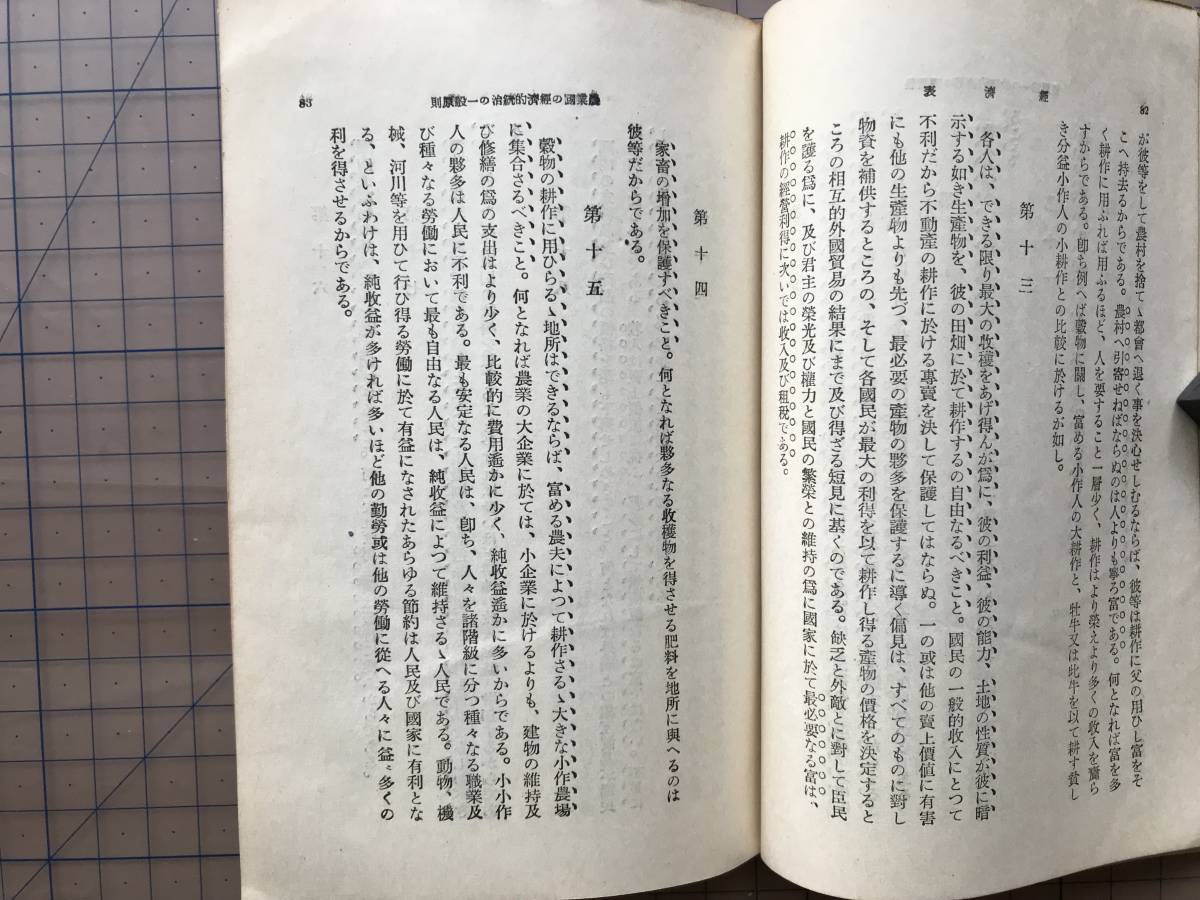 經濟表
82
が彼等をして農村を捨てゝ都會へ退く事を決心せしむるならば、彼等は耕作に父の用ひし富をそ
こへ持去るからである。農村へ引寄せねばならぬのは人よりも寧ろ富である。何となれば富を多
く耕作に用ふれば用ふるほど、人を要すること一層少く、耕作はより榮えより多くの收入を齎ら
すからである。卽ち例へば穀物に關し、富める小作人の大耕作と、牡牛又は牝牛を以て耕す貧し
き分益小作人の小耕作との比較に於けるが如し。
第十三
各人は、できる限り最大の收穫をあげ得んが爲に、彼の利益、彼の能力、土地の性質が彼に暗
示する如き生產物を、彼の田畑に於て耕作するの自由なるべきこと。國民の一般的收入にとつて
不利だから不動產の耕作に於ける專賣を決して保護してはならぬ。一の或は他の賣上價値に有害
にも他の生產物よりも先づ、最必要の產物の夥多を保護するに導く偏見は、すべてのものに對し
物資を補供するところの、そして各國民が最大の利得を以て耕作し得る產物の價格を決定すると
ころの相互的外國貿易の結果にまで及び得ざる短見に基くのである。缺乏と外敵とに對して臣民
を護る爲に、及び君主の榮光及び權力と國民の繁榮との維持の爲に國家に於て最必要なる富は、
耕作の經營利得に次いでは收入及び租稅である。
農業國の經濟的統治の一般原則
83
第十四
家畜の增加を保護すべきこと。何となれば夥多なる收穫物を得させる肥料を地所に與へるのは
彼等だからである。
第十五
穀物の耕作に用ひらるゝ地所はできるならば、富める農夫によつて耕作さるゝ大きな小作農場
に集合さるべきこと。何となれば農業の大企業に於ては、小企業に於けるよりも、建物の維持及
び修繕の爲の支出はより少く、比較的に費用遙かに少く、純收益遙かに多いからである。小小作
人の夥多は人民に不利である。最も安定なる人民は、卽ち、人々を諸階級に分つ種々なる職業及
び種々なる勞働において最も自由なる人民は、純收益によつて維持さるゝ人民である。動物、機
械、河川等を用ひて行ひ得る勞働に於て有益になされたあらゆる節約は人民及び國家に有利とな
る、といふわけは、純收益が多ければ多いほど他の勤勞或は他の勞働に從へる人々に益々多くの
利を得させるからである。